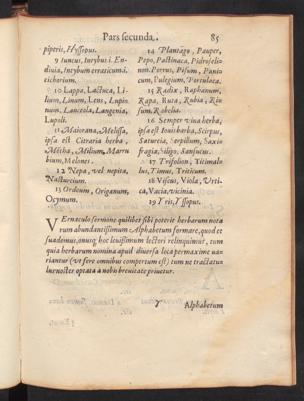 Pars secunda.
85
piperis, Hyssopus.
9 Iuncus, Intybus i. En-
diuia, Intybum erraticum á,
cichorium.
10 Lappa, Lactuca, Li-
lium, Linum, Lens, Lupin
num, Lanceola, Langenia,
Lupoli.
11 Maiorana, Melissa,
ipsa est Citraria herba,
Mẽtha, Milium, Marru
bium, Melones.
12 Nepa, vel nepita,
Nasturcium.
13 Ordeum, Origanum,
Ocymum.
14 Plantago, Pauper,
Pepo, Pastinaca, Pidroselio-
non. Porrus, Pisum, Pani-
cum, Pulegium, Portulaca.
15 Radix, Raphanum,
Rapa, Ruta, Rubia, Ris-
sum, Robelia.
16 Semper viua herba,
ipsa est Iouis barba, Scirpus,
Satureia, Serpillum, Saxi-
fragia, Siligo, Sansucus.
17 Trifolion, Titimal-
lus, Timus, Triticum.
18 Viscus, Viola, Vrti-
ca, Vacia, vicinia.
19 Yris, Yssopus.
VErnaculo sermone quilibet sibi poterit herbarum nota
rum abundantissimum Alphabetum formare, quod et
suademus, onusq hoc leuissimum lectori relinquimus, tum
quia herbarum nomina apud diuersa loca permaxime ua-
riantur (vt fere omnibus compertum est) tum ne tractatus
optata à nobis breuitate priuetur.
Alphabetum